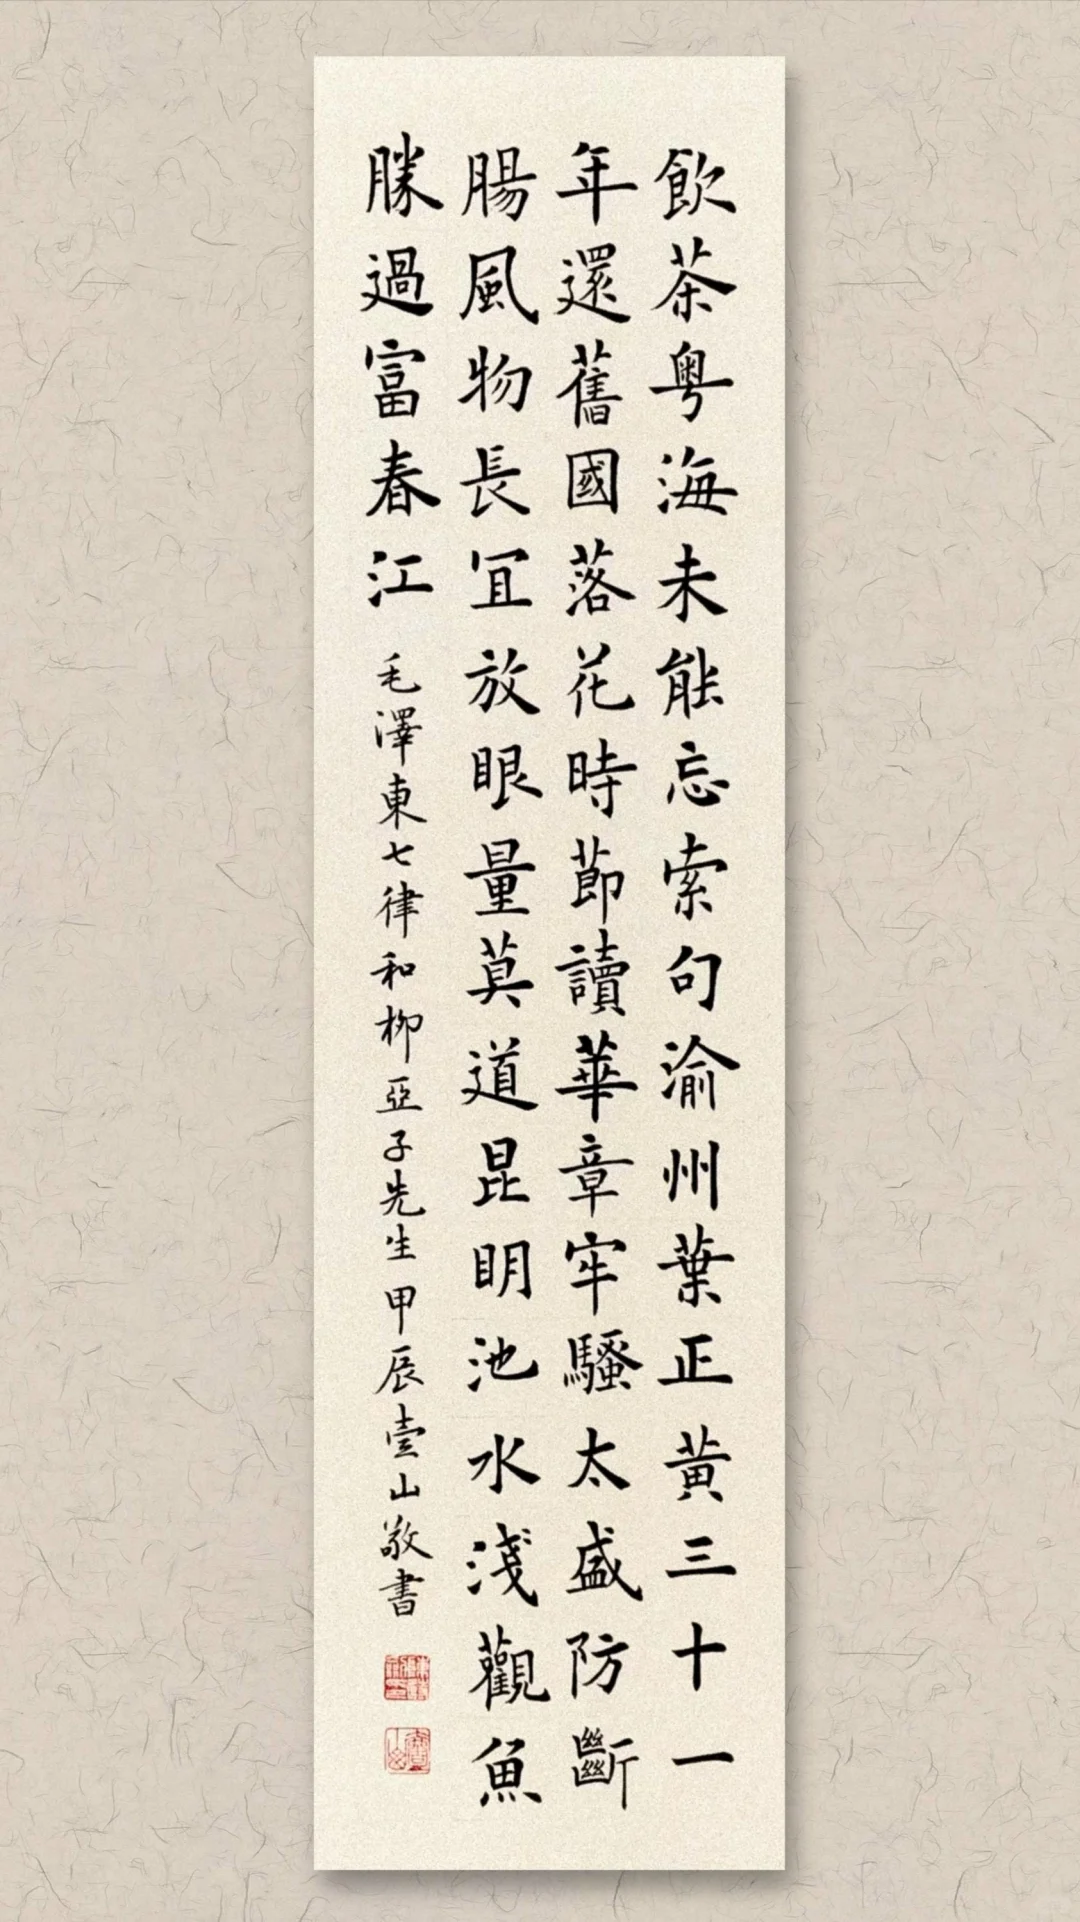 飲茶粵海未能忘索句渝州葉正黃三十一
年還舊國落花時節讀華章牢騷太盛防斷
腸風物長宜放眼量莫道昆明池水淺觀魚
勝過富春江
毛澤東七律和柳亞子先生甲辰壹山敬書